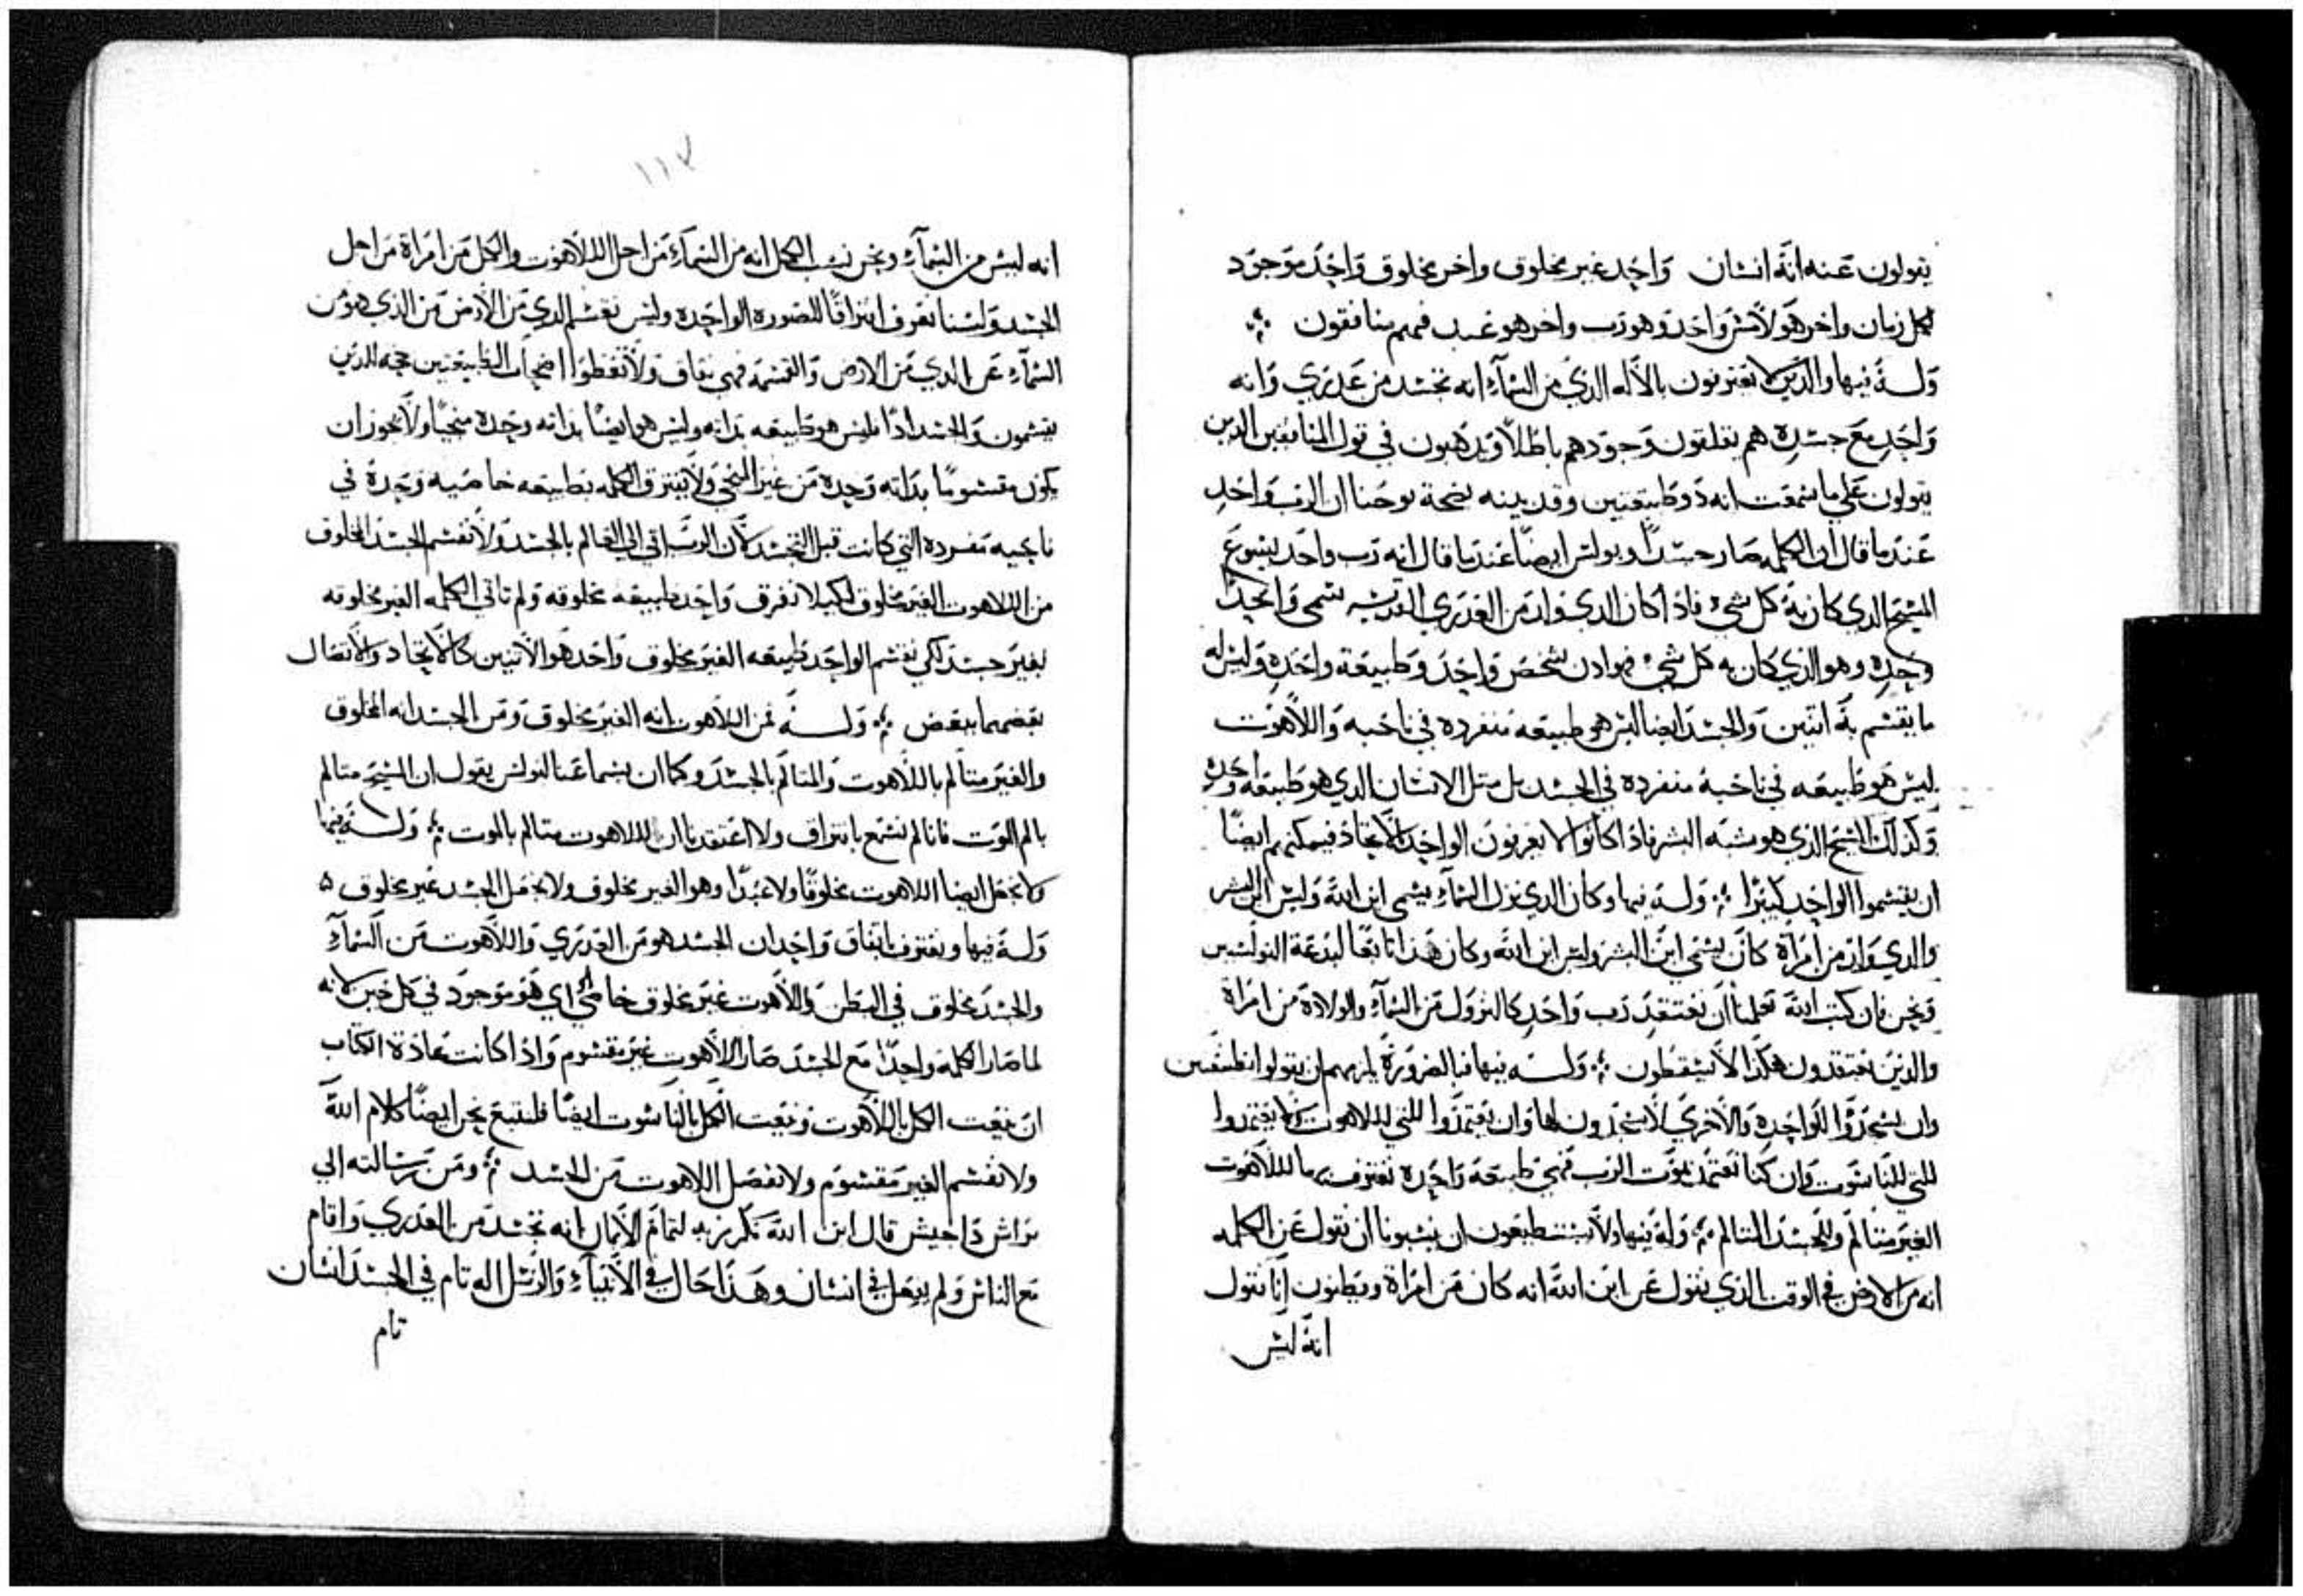 يقولون عنه انه انسان واحد غير مخلوق واخر مخلوق واحد موجود
لكل زمان واخر هو لامس واحد هو رب واخر هو عبد فهم منافقون
وله فيها والذين لا يعترفون بالاله الذي من السماء انه تجسد من عذري وانه
واحد مع جسده هم يقلقون وجودهم باطلا ويذهبون في قول المنافقين الذين
يقولون على ما سمعت انه ذو طبيعتين وقد بينه بصحة يوحنا ان الرب واحد
عندما قال ان الكلمه صار جسدا وبولس ايضا عندما قال انه رب واحد يسوع
المسيح الذي كان به كل شيء فاذا كان الذي ولد من العذري القديسه سمي واحدا
وحده وهو الذي كان به كل شيء فهو اذن شخص واحد وطبيعة واحده وليس له
ما يقسم به اتنين والجسد ايضا ليس هو طبيعه منفرده في ناحيه واللاهوت
ليس هو طبيعه في ناحية منفرده في الجسد بل متل الانسان الذي هو طبيعه وحده
وكذلك المسيح الذي هو شبه البشر فاذا كانوا لا يعرفون الواحد بالاتحاد فيمكنهم ايضا
ان يقسموا الواحد كتيرا وله فيها وكان الذي نزل من السماء يسمى ابن الله وليس ابن البشر
والذي ولد من امراة كان يسمى ابن البشر وليس ابن الله وكان هذا تابعا لبدعة البولسيين
ونحن فان كتب الله تعلمنا ان نعتقد رب واحد كالنزول من السماء والولادة من امراة
والذين يعتقدون هكذا لا يسقطون وله فيها فبالضرورة يلزمهم ان يقولوا طبيعتين
وان يسجدوا للواحده والاخري لا يسجدون لها وان يعتمدوا للتي للاهوت ولا يعتمدوا
للتي للناسوت وان كنا نعتمد بموت الرب فهي طبيعة واحده نعترف بها للاهوت
الغير متالم والجسد المتالم وله فيها ولا يستطيعون ان ينسبونا ان نقول عن الكلمه
انه من الارض في الوقت الذي نقول عن ابن الله انه كان من امراة ويظنون انا نقول
انه ليس
١١٧
انه ليس من السماء ونحن ننسب الكل انه من السماء من اجل اللاهوت والكل من امراة من اجل
الجسد ولسنا نعرف افتراقا للصوره الواحده وليس نقسم الذي من الارض من الذي هو من
السماء عن الذي من الارض والقسمه فهي نفاق ولا تعطوا اصحاب الطبيعتين حجه الذين
يقسمون والجسد اذا فليس هو طبيعه بذاته وليس هو ايضا بذاته وحده منجيا ولا يجوز ان
يكون مقسوما بذاته وحده من غير المنجي ولا يفترق الكلمه بطبيعه خاصيه وحده في
ناحيه مفرده التي كانت قبل التجسد لان الرب اتى الي العالم بالجسد ولا نقسم الجسد المخلوق
من اللاهوت الغير مخلوق لكيلا نفرق واحد طبيعه مخلوقه ولم تاتي الكلمه الغير مخلوقه
بغير جسد لكي نقسم الواحد طبيعه الغير مخلوق واحد هو الاتنين كالاتحاد والاتصال
بعضهما ببعض وله فمن اللاهوت انه الغير مخلوق ومن الجسد انه المخلوق
والغير متالم باللاهوت والمتالم بالجسد وكما ان بسماعنا لبولس يقول ان المسيح متالم
بالم الموت فانا لم نسمع بافتراق ولا اعتقدنا ان اللاهوت متالم بالموت وله فيها
ولا نجعل ايضا اللاهوت مخلوقا ولا عبدا وهو الغير مخلوق ولا نجعل الجسد غير مخلوق
وله فيها ونعترف باتفاق واحد ان الجسد هو من العذري واللاهوت من السماء
والجسد مخلوق في البطن واللاهوت غير مخلوق اي هو موجود في كل حين لانه
لما صار الكلمه واحدا مع الجسد صار اللاهوت غير مقسوم واذا كانت عادة الكتاب
ان ينعت الكل باللاهوت وينعت الكل بالناسوت ايضا فلنتبع نحن ايضا كلام الله
ولا نقسم الغير مقسوم ولا نفصل اللاهوت من الجسد ومن رسالته الي
قال ابن الله لتمام الايمان انه تجسد من العذري واقام
مع الناس ولم يفعل في انسان وهذا حال في الانبياء والرسل اله تام في الجسد انسان
تام